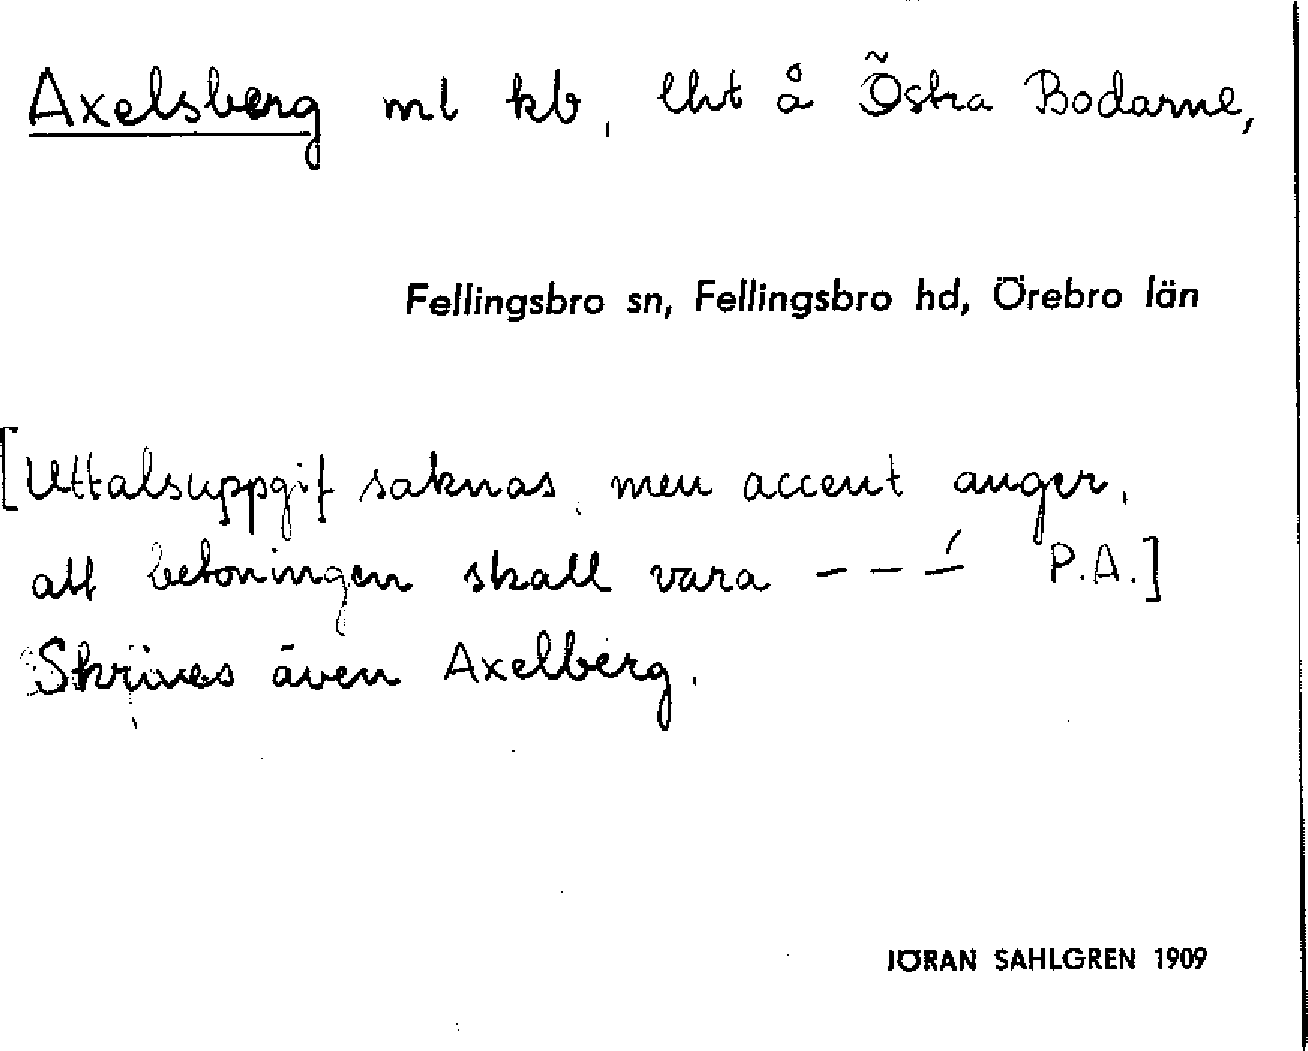 Axelsberg ml kb, lht å Östra Bodarne,
Fellingsbro sn, Fellingsbro hd, Örebro län
[Uttalsuppgift saknas, men accent anger,
att betoningen skall vara – – –́ P.A.]
Skrives även Axelberg.
JÖRAN SAHLGREN 1909